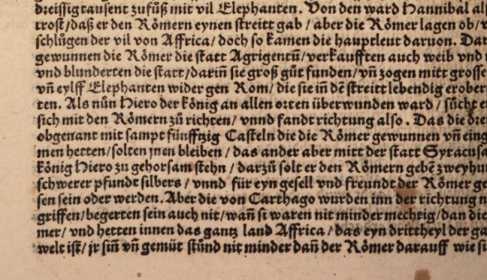 dreissig tausent zufůß mit vil Elephanten. Von den ward Hannibal als
trost/daß er den Römern eynen streitt gab / aber die Römer lagen ob/
schlůgen der vil von Affrica/doch so kamen die hauptleut daruon. Dar
gewunnen die Römer die statt Agrigentũ/verkaufften auch weib vnd
vnd blunderten die statt/dariñ sie groß gůt funden/vñ zogen mitt grosse
vñ eylff Elephanten wider gen Rom/die sie in dẽ streitt lebendig erober
ten. Als nůn Hiero der künig an allen orten überwunden ward / sůcht er
sich mit den Römern zů richten/ vnnd fandt richtung also. Das die die
obgenant mit sampt fünfftzig Casteln die die Römer gewunnen vñ eing
men hetten/solten jnen bleiben / das ander aber mitt der statt Syracusa
künig Hiero zů gehorsam stehn / darzů solt er den Römern gebẽ zweyhu
schwerer pfundt silbers / vnnd für eyn gesell vnd freundt der Römer ge
sen sein oder werden. Aber die von Carthago wurden inn der richtung n
griffen/begerten sein auch nit/wañ si waren nit minder mechtig/dan die
mer/ vnd hetten innen das gantz land Affrica / das eyn drittheyl der ga
welt ist/ jr siñ vñ gemüt stůnd nit minder dañ der Römer darauff wie si